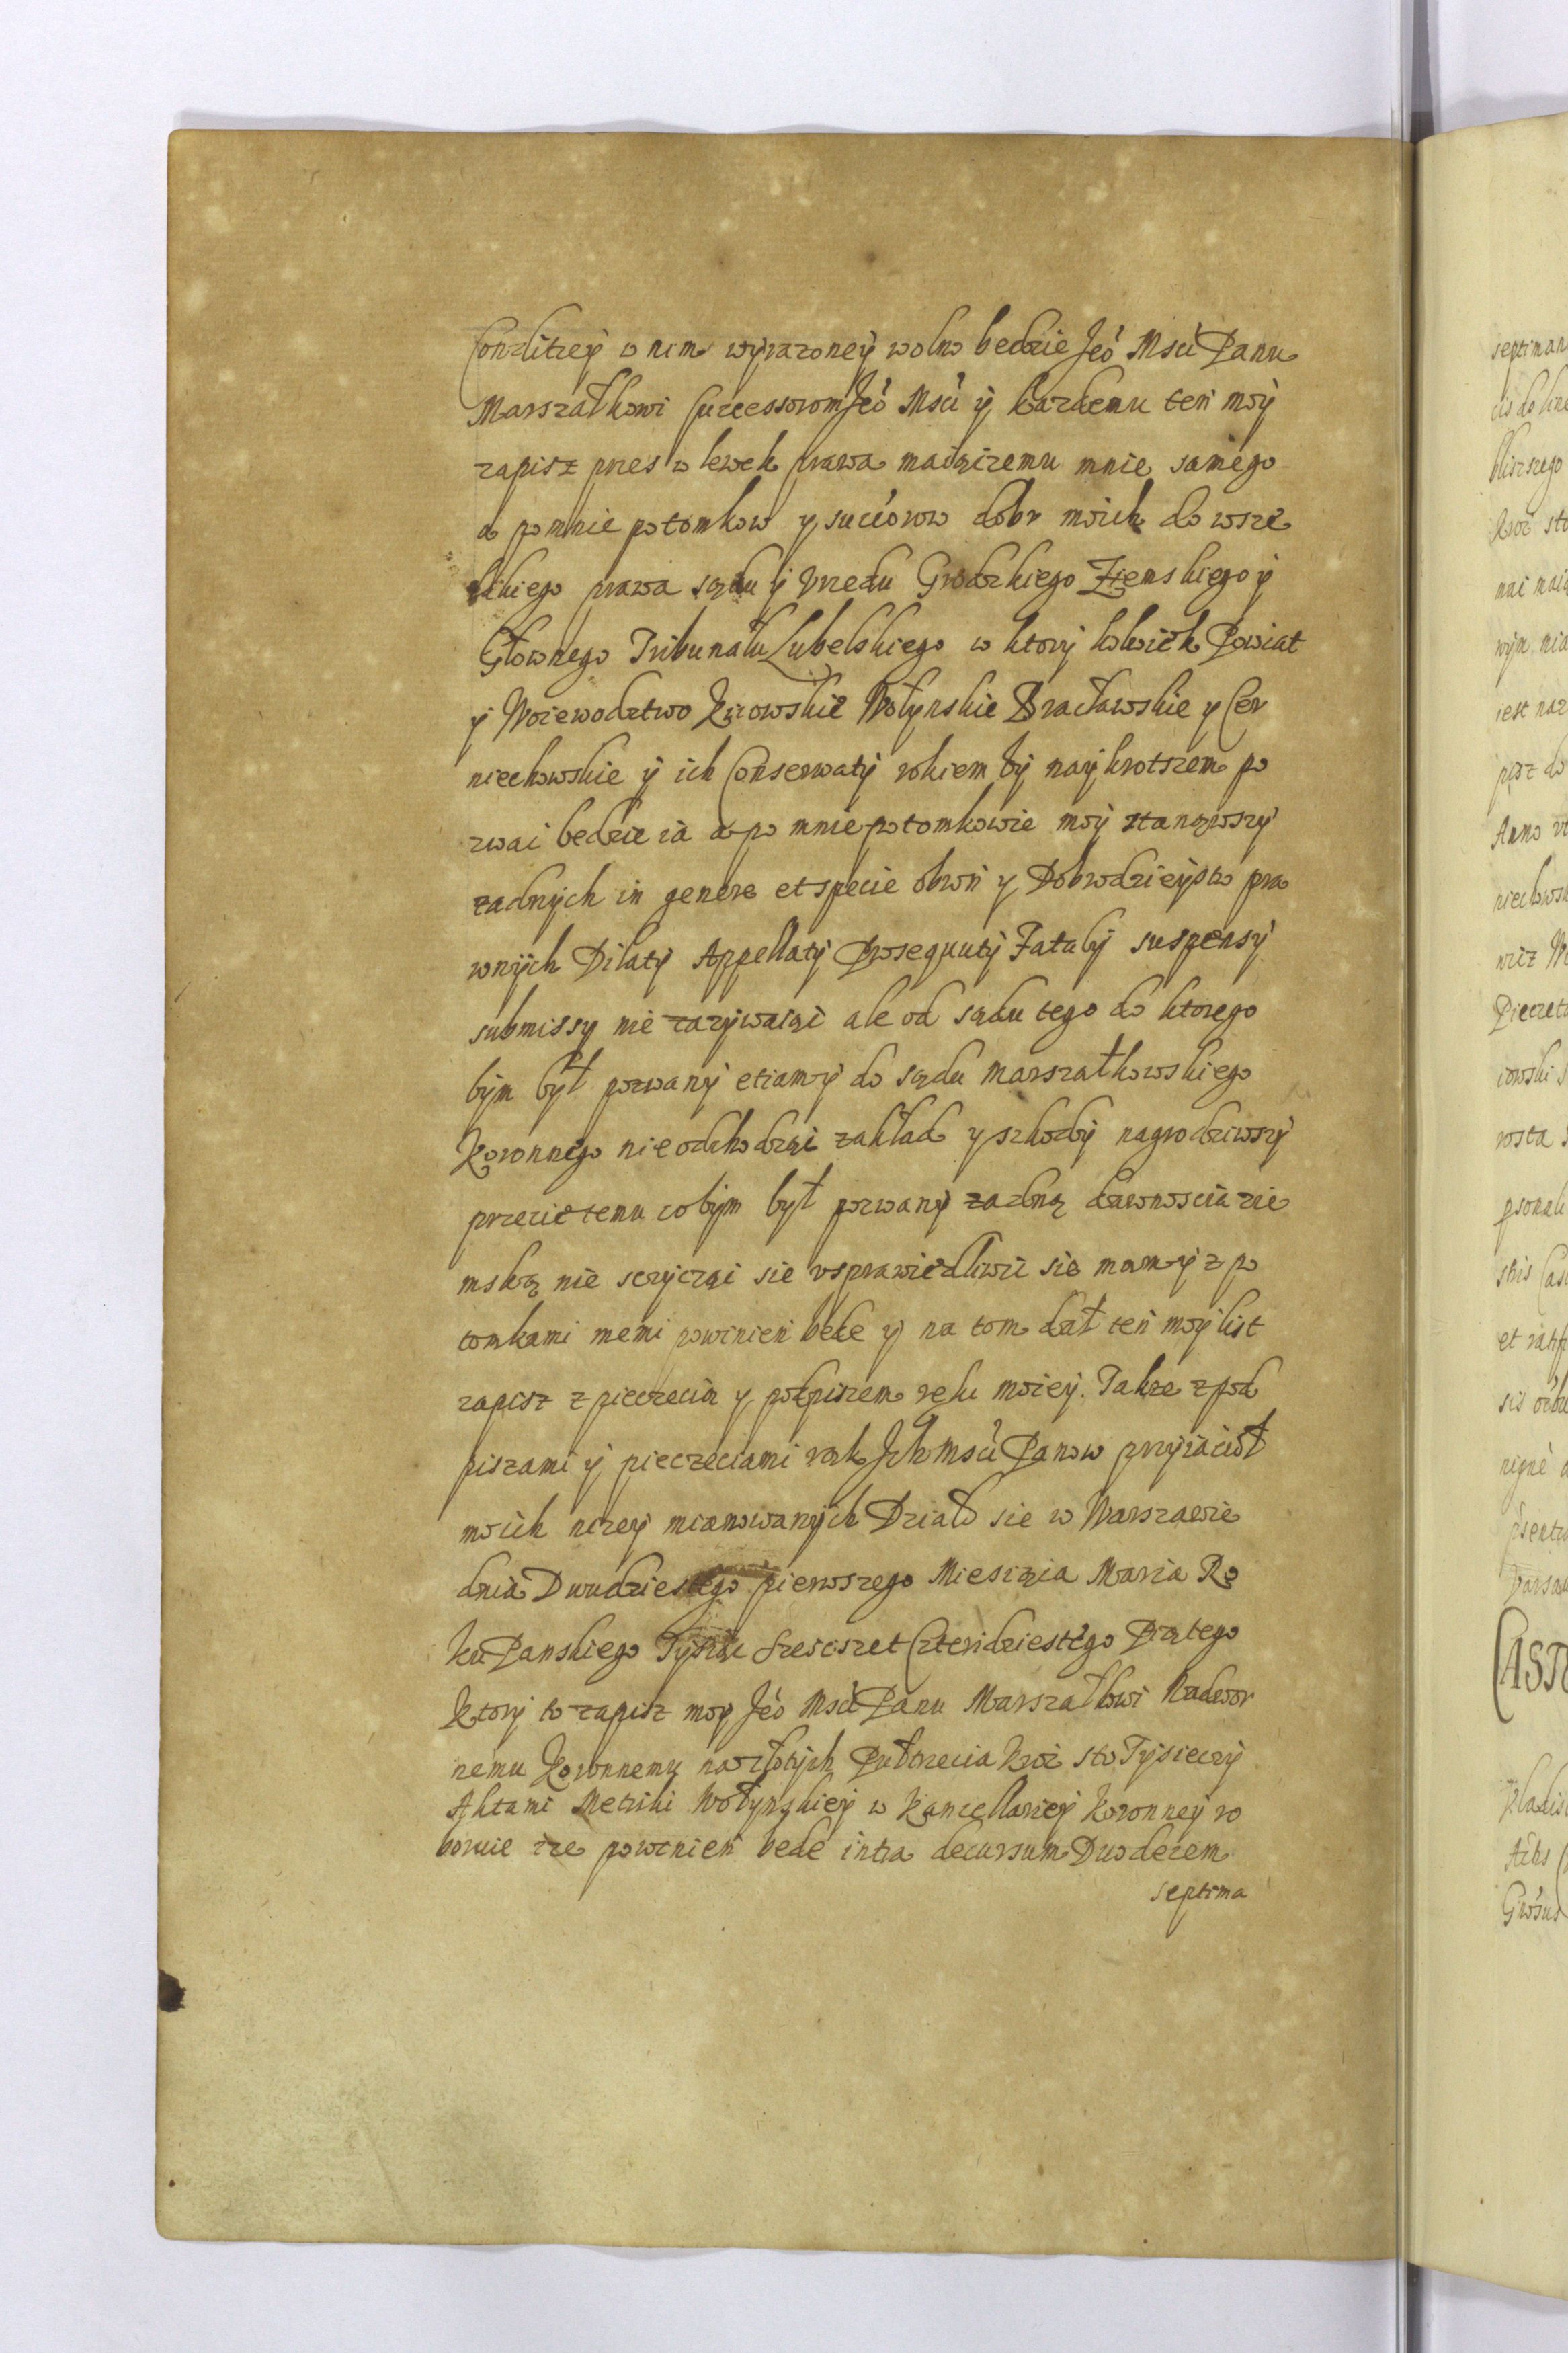 Conditiey w nim wyrazoney wolno bedzie Jeo Msci Panu
Marszałkowi Successorom Jeo Msci y kazdemu ten moy
zapisz przes wlewek prawa maiącemu mnie samego
a po mnie potomkow y succorow dobr moich do wsze
lakiego prawa sądu y Vrzedu Grodzkiego Ziemskiego y
Głownego Tribunału Lubelskiego w ktory kolwiek Powiat
y Woiewodztwo Kiiowskie Wołynskie Bracławskie y Cer
niechowskie y ich Conserwaty rokiem by naykrotszem po
zwac bedzie ia a po mnie potomkowie moy stanąwszy
zadnych in genere et specie obron y Dobrodzieystw pra
wnych Dilaty Appellaty Prosequuty Fataly suspensy
submissy nie zazywaiąc ale od sądu tego do ktorego
bym był pozwany etiam y do sądu Marszałkowskiego
Koronnego nie odchodząc zakład y szkody nagrodziwszy
przecie temu co bym był pozwany zadną dawnoscia zie
mską nie sczycząc sie vsprawiedliwic sie mam y z po
tomkami memi powinien bede y na tom dał ten moy list
zapisz z pieczecia y podpiszem reku moiey. Takze z pod
piszami y pieczeciami rąk Ich Msci Panow przyiacioł
moich nizey mianowanych Działo sie w Warszawie
dnia Dwudziestego pierwszego Miesiąca Marca Ro
ku Panskiego Tysiąc Szescszet Czterdziestego Piątego
Ktory to zapisz moy Jeo Msci Panu Marszałkowi Nadwor
nemu Koronnemu na złotych Pułtrecia Kroc sto Tysieczy
Aktami Metriki Wołynskiey w Kancellariey Koronney ro
borowac ze powinien bede intra decursum Duodecem
septima

septiman
bliszszego
Kroc sto
wym nia
iest naz
pisz do
Anno
niechowsk
wicz
Pieczeto
iowski
rosta
et
CASTE